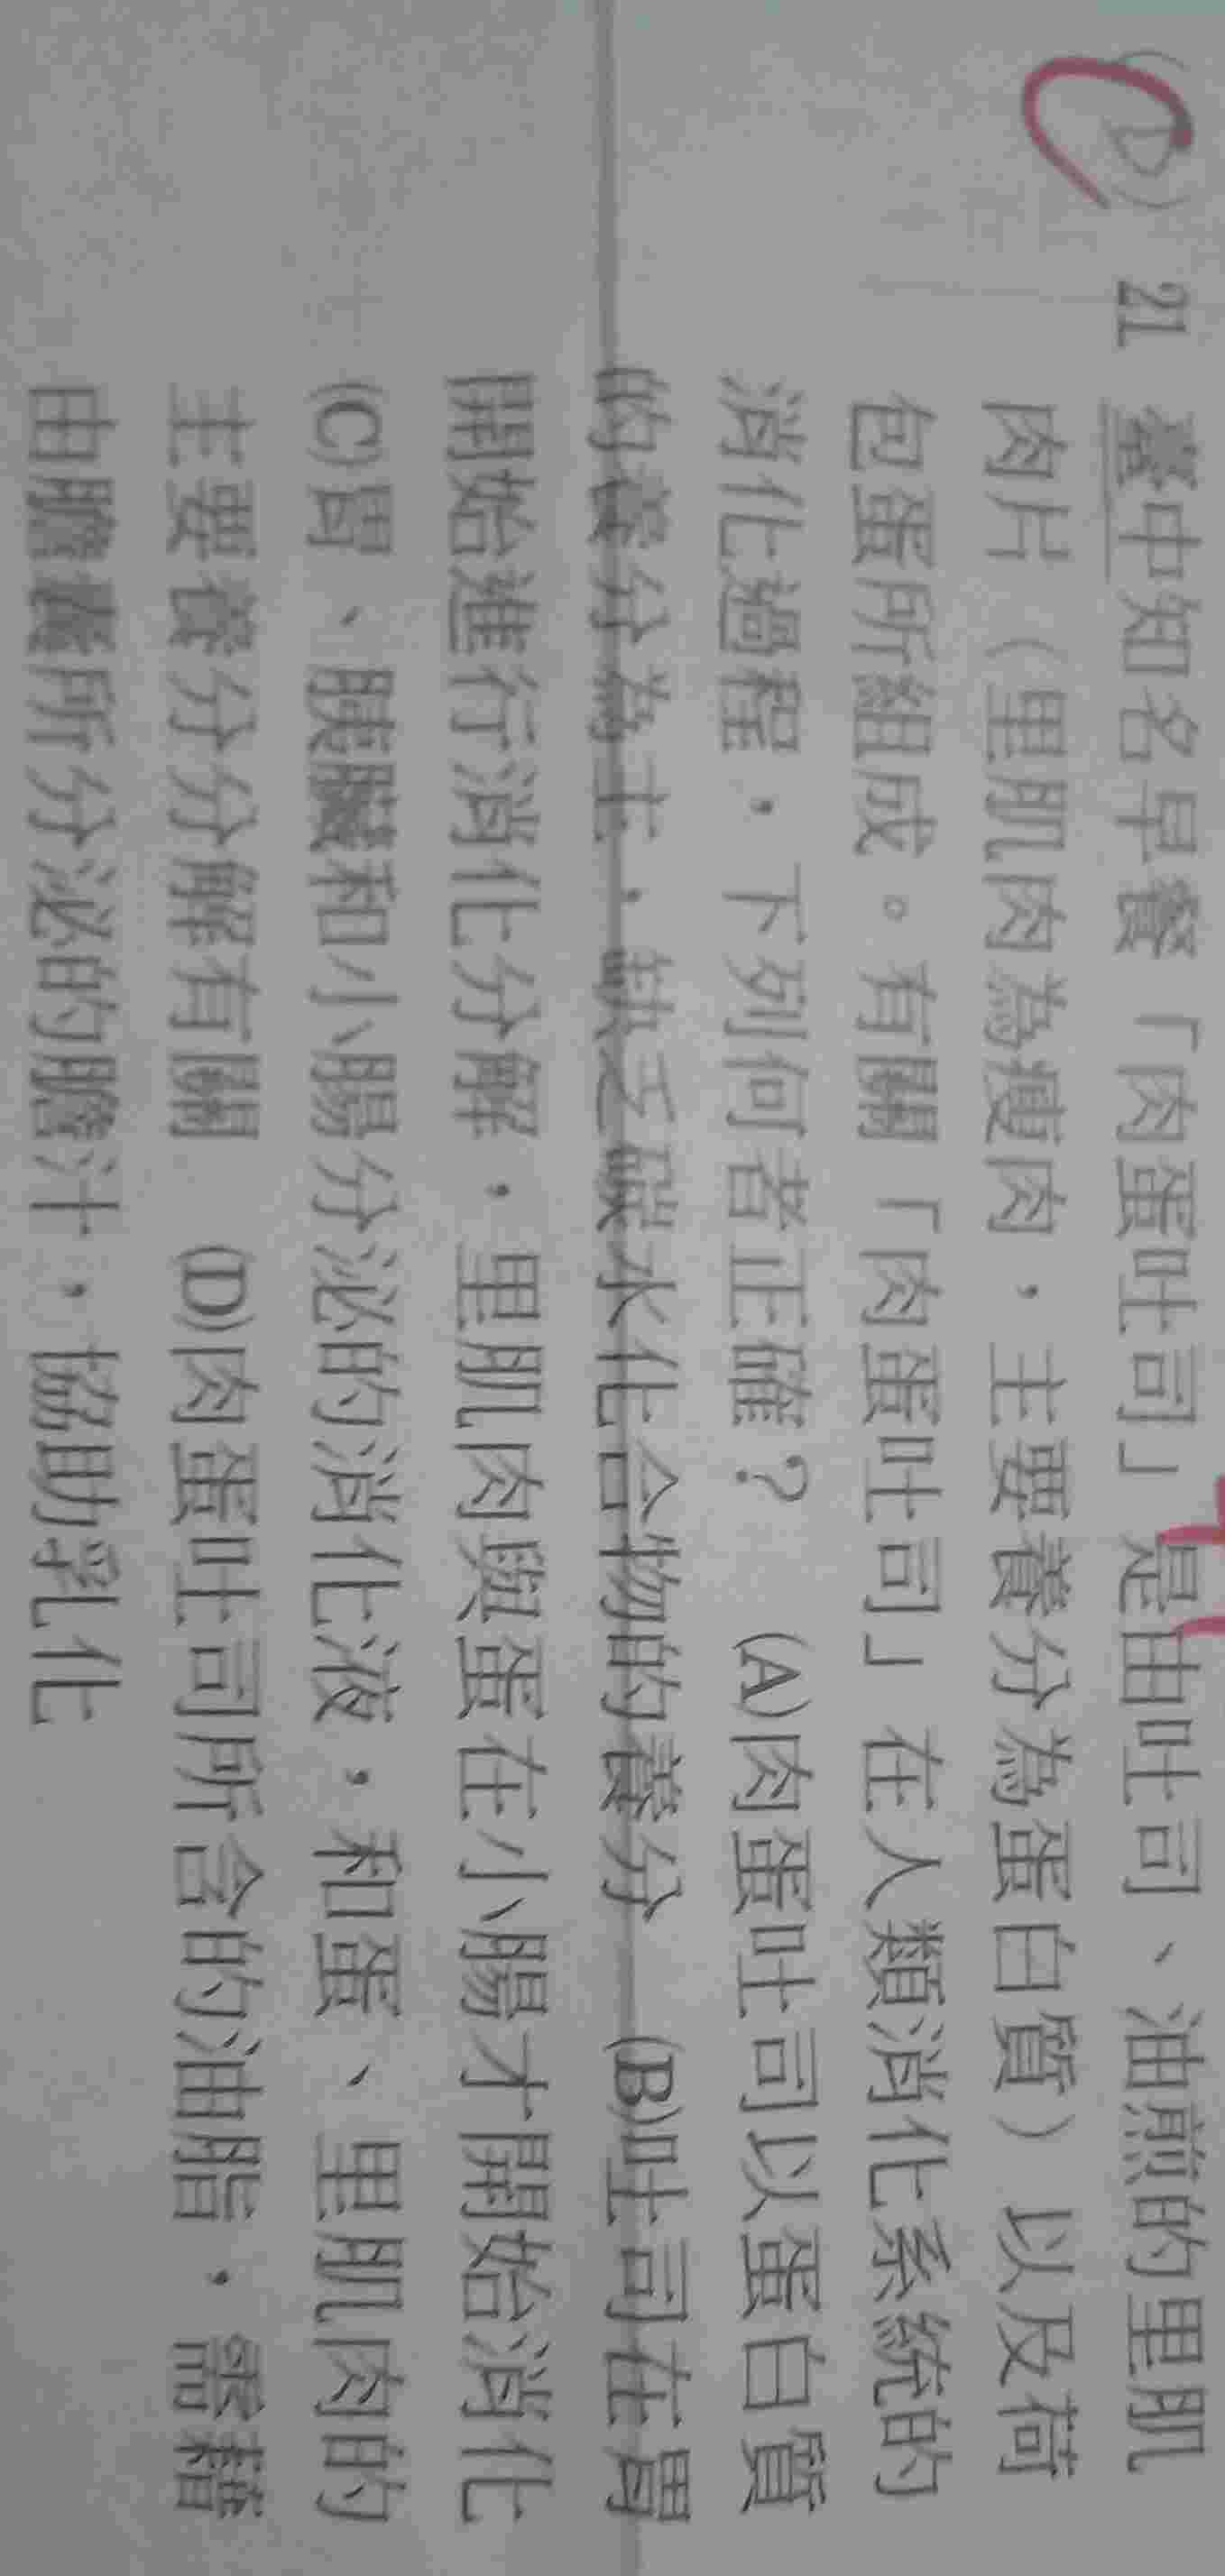 (D) C 21 臺中知名早餐「肉蛋吐司」是由吐司、油煎的里肌
肉片（里肌肉為瘦肉，主要養分為蛋白質）以及荷
包蛋所組成。有關「肉蛋吐司」在人類消化系統的
消化過程，下列何者正確？ (A)肉蛋吐司以蛋白質
的養分為主，缺乏碳水化合物的養分 (B)吐司在胃
開始進行消化分解，里肌肉與蛋在小腸才開始消化
(C)胃、胰臟和小腸分泌的消化液，和蛋、里肌肉的
主要養分分解有關 (D)肉蛋吐司所含的油脂，需藉
由膽囊所分泌的膽汁，協助乳化